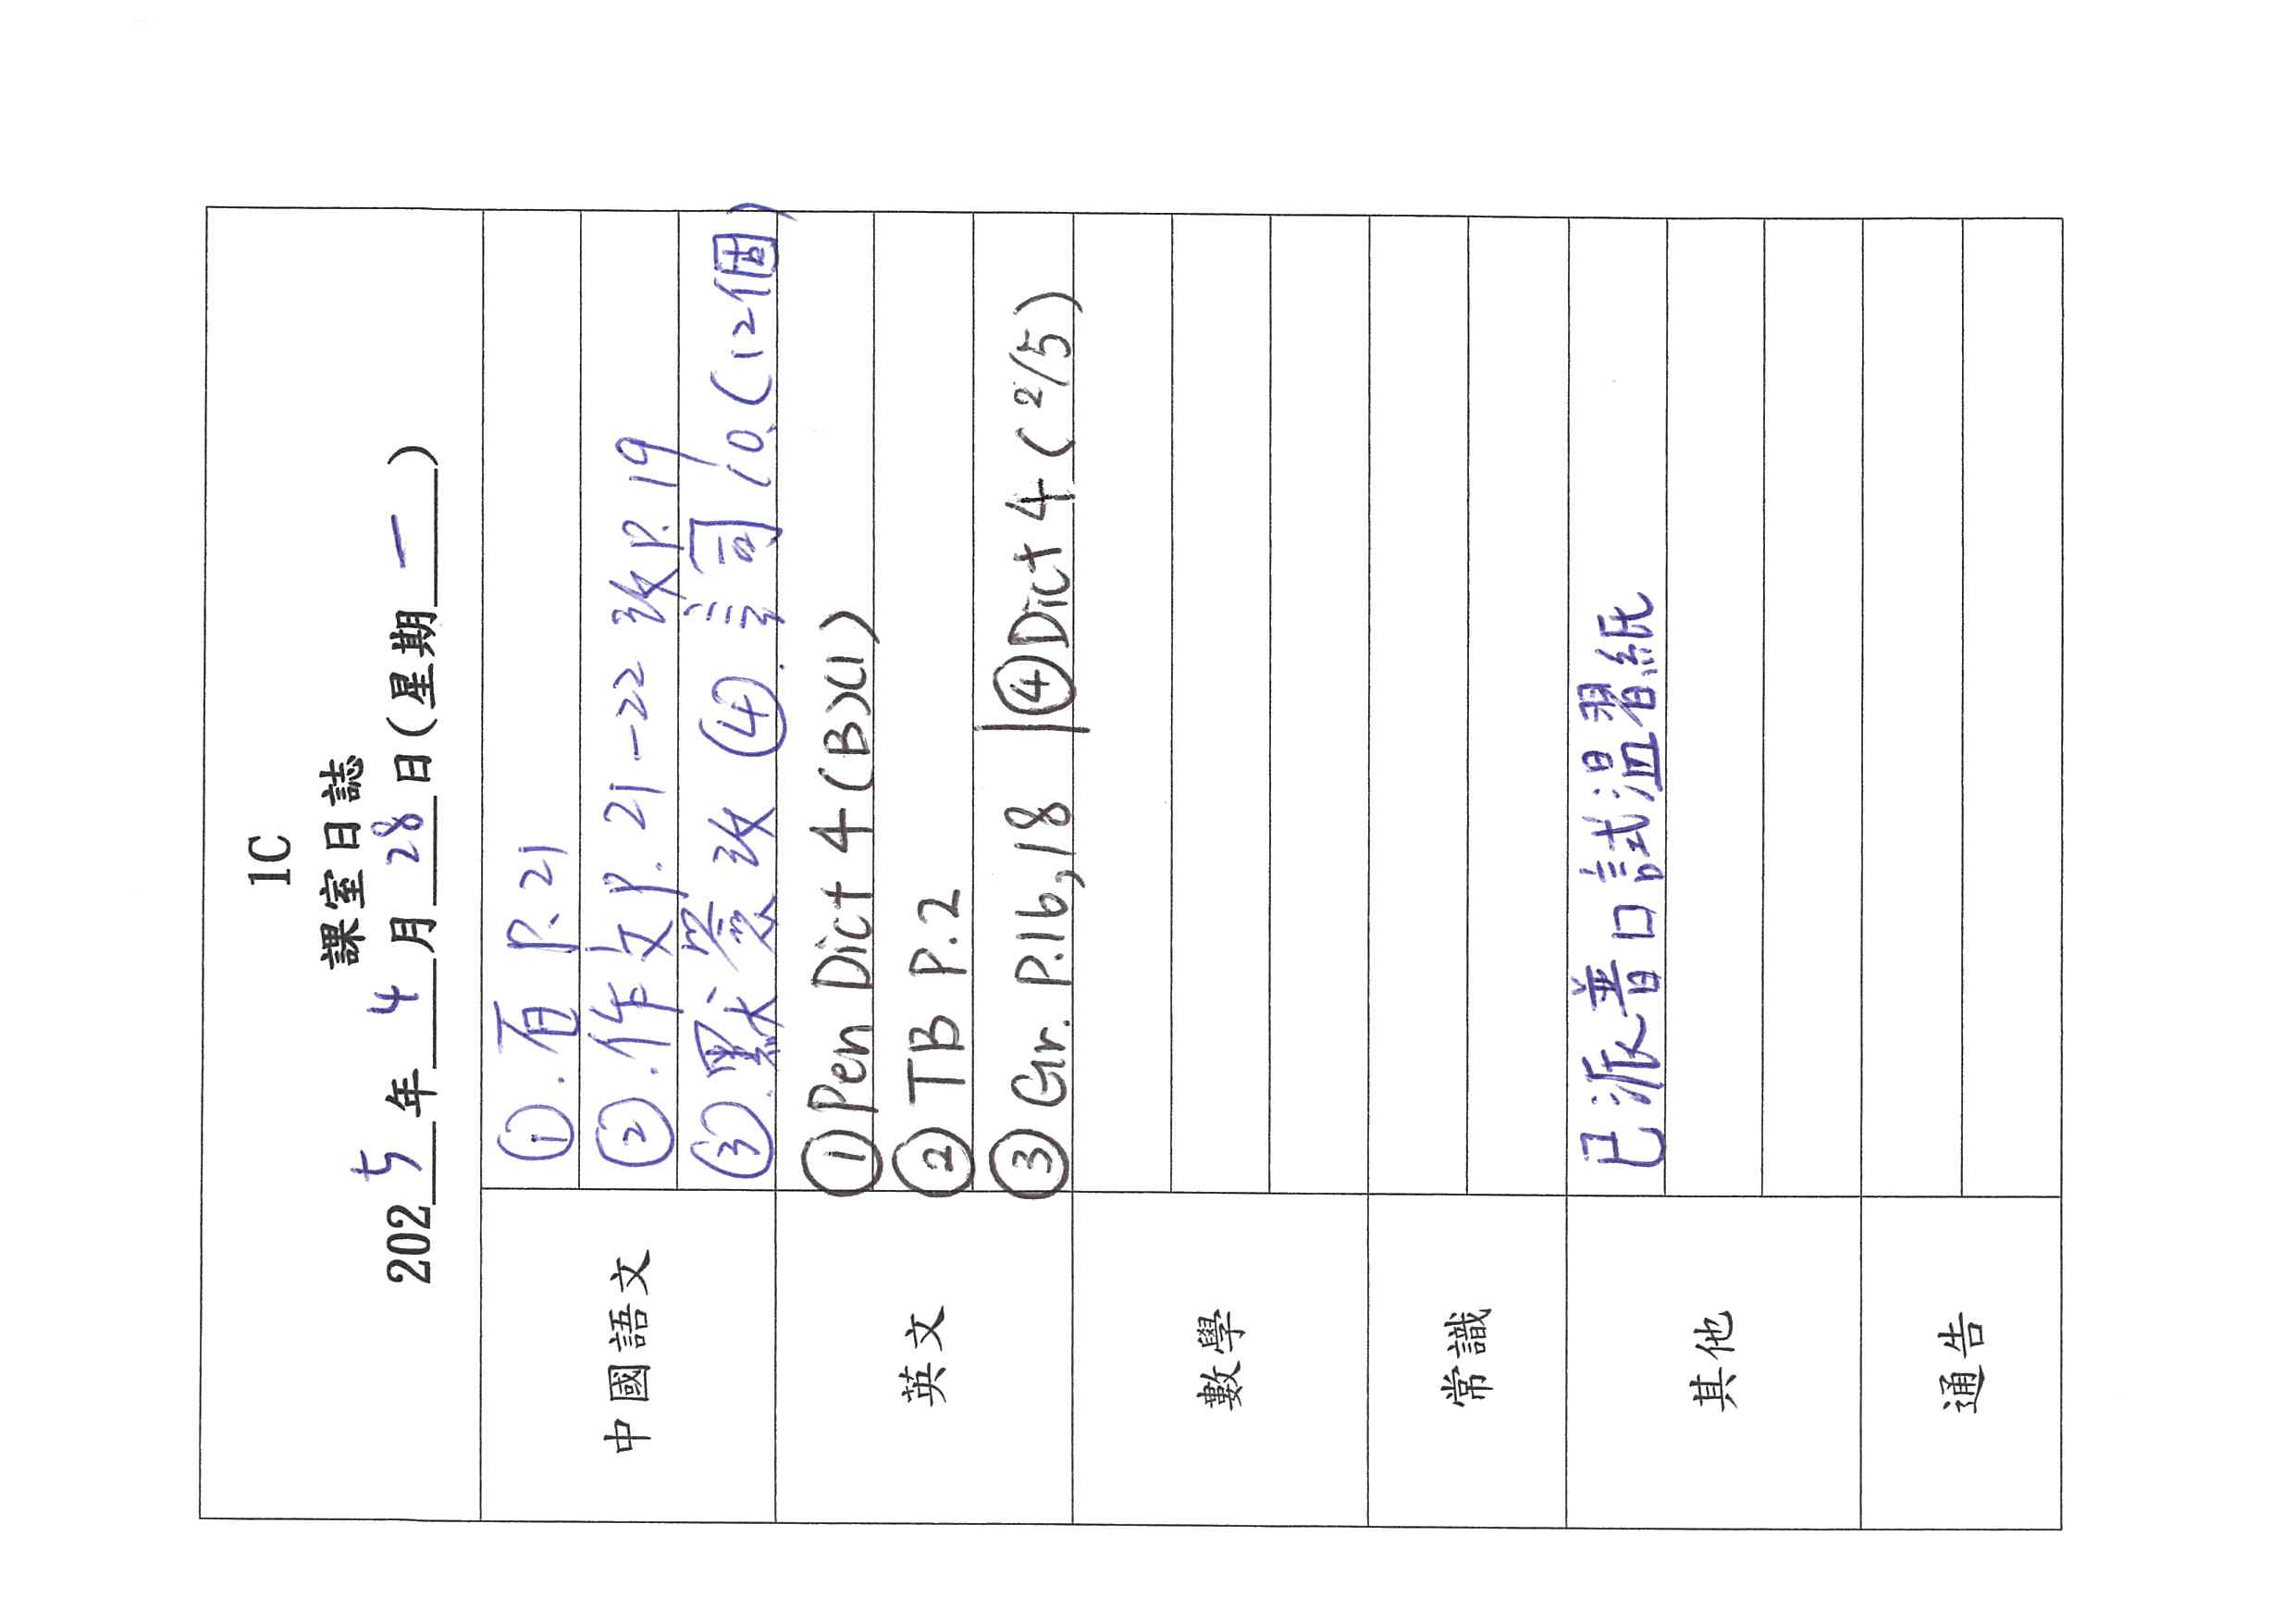 1C
課室日誌
2025年4月28日(星期一)
中國語文
①.百P.21
②.作文P.21-22 改P.19
③.默簽改 ④.詞10.(12個)
英文
①Pen Dict 4 (B)(1)
②TB P.2
③Gr. P.16,18 ④Dict 4 (2/5)
數學
常識
其他
已派普口試溫習紙
通告